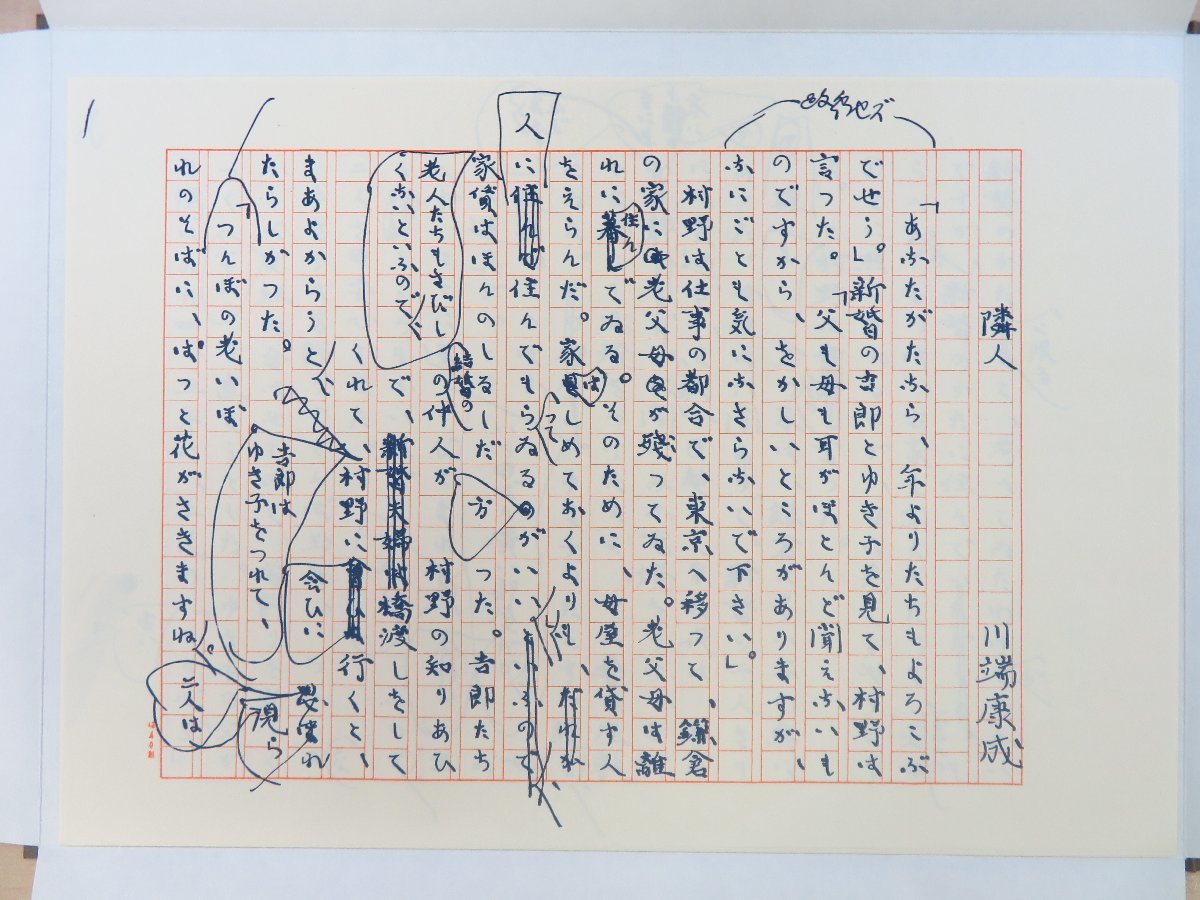 隣人
川端康成
改行セズ
「あなたがたなら、年よりたちもよろこぶ
でせう。」新婚の吉郎とゆき子を見て、村野は
言つた。「父も母も耳がほとんど聞えないも
のですから、をかしいところがありますが、
なにごとも気になさらないで下さい。」
村野は仕事の都合で、東京へ移つて、鎌倉
の家に老父母が残つてゐた。老父母は離
れに住んでゐる。そのために、母屋を貸す人
をえらんだ。家はしめておくよりも、だれか
人に住んでもらつてゐる方がいい
家賃はほんのしるしだつた。吉郎たち
老人たちもさびしくないといふので、
結婚の仲人が村野の知りあひ
で、橋渡しをして
くれて、村野に会ひに行くと、
吉郎は
ゆき子をつれて、
まあよからうと、
二人は
現ら
れ
たらしかつた。
「つんぼの老いぼ
れのそばに、ぱつと花がさきますね。
1